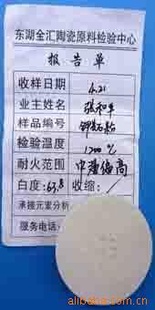 东湖全汇陶瓷原料检验中心
报告单
收样日期 4.21
业主姓名 张和平
样品编号 钾长石粉
检验温度 1200℃
耐火范围 中温偏高
白度:63.8 收缩: /
承接元素分析
服务电话
alibaba.com.cn